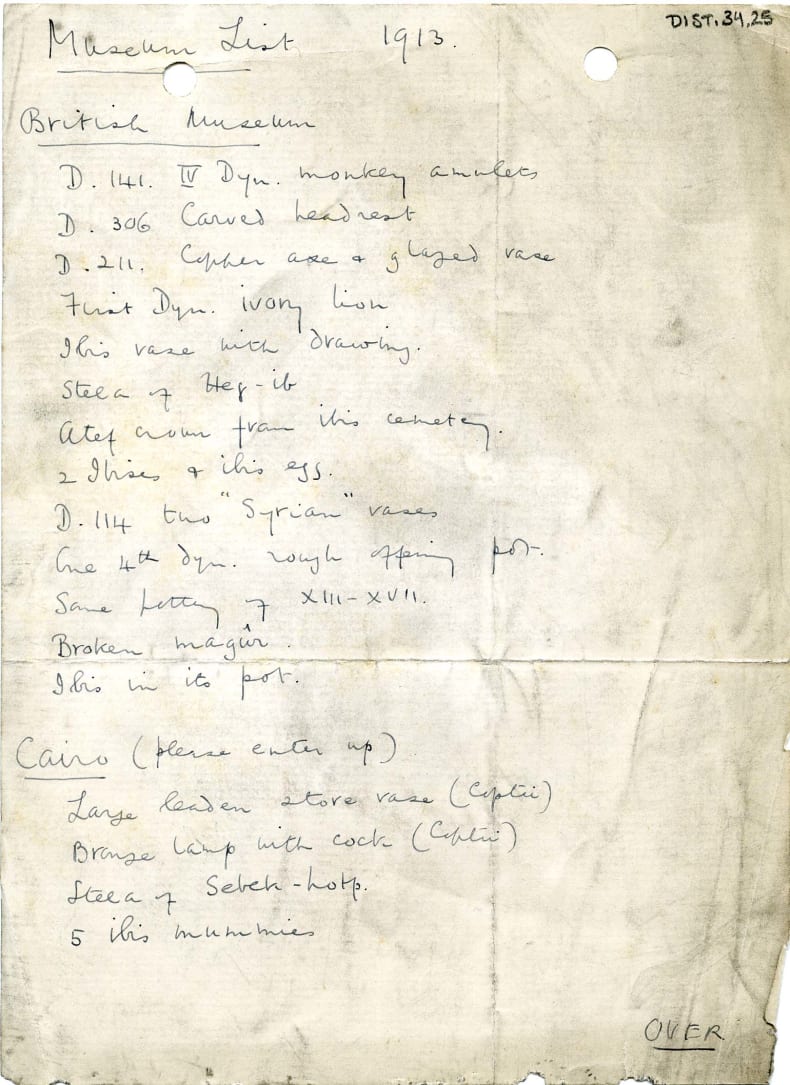 DIST.34,25
Museum List 1913.
British Museum
D. 141. IV Dyn. monkey amulets
D. 306 Carved headrest
D. 211. Copper axe & glazed vase
First Dyn. ivory lion
Ibis vase with drawing.
Stela of Heq-ib
Atef crown from ibis cemetery.
2 Ibises & ibis egg.
D. 114 two "Syrian" vases
One 4th dyn. rough offering pot.
Some pottery of XIII-XVII.
Broken magûr.
Ibis in its pot.
Cairo (please enter up)
Large leaden store vase (Coptic)
Bronze lamp with cock (Coptic)
Stela of Sebek-hotp.
5 ibis mummies
OVER